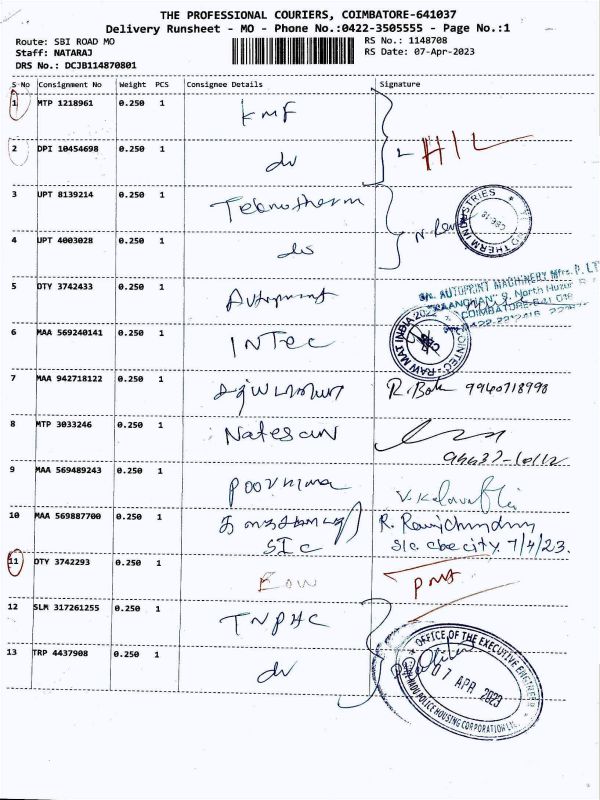 THE PROFESSIONAL COURIERS, COIMBATORE-641037
Delivery Runsheet - MO - Phone No.:0422-3505555 - Page No.:1
Route: SBI ROAD MO
RS No.: 1148708
Staff: NATARAJ
RS Date: 07-Apr-2023
DRS No.: DCJB114870801
S No Consignment No Weight PCS Consignee Details Signature
1 MTP 1218961 0.250 1 KMF
2 DPI 10454698 0.250 1 do HIL
3 UPT 8139214 0.250 1 Teknotherm
4 UPT 4003028 0.250 1 do
5 DTY 3742433 0.250 1 Autoprint
AUTOPRINT MACHINERY Mfrs. P. LT
COIMBATORE-641 0
6 MAA 569240141 0.250 1 INTEC
RAW MAT INDIA 2022
7 MAA 942718122 0.250 1 R. 9940718998
8 MTP 3033246 0.250 1 Natesan
9 MAA 569489243 0.250 1 Poornima
10 MAA 569887700 0.250 1 SIC
R. Ravichandran
SIC cbe city 7/4/23.
11 DTY 3742293 0.250 1 EOW
12 SLM 317261255 0.250 1 TNPHC
13 TRP 4437908 0.250 1 do
OFFICE OF THE EXECUTIVE ENGINEER
07 APR 2023
POLICE HOUSING CORPORATION LTD.